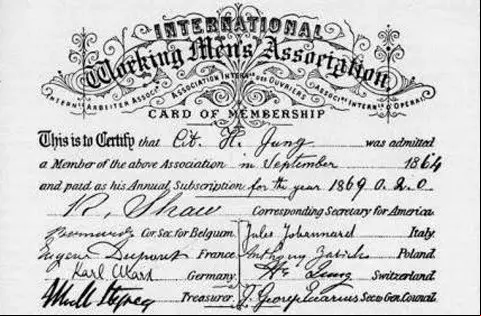 INTERNATIONAL
Working Men's Association
INTERN. ARBEITER ASSOC. ASSOCIATION INTERN. DES OUVRIERS ASSOC. INTERN. D'OPERAI
CARD OF MEMBERSHIP
This is to Certify that Cit. H. Jung was admitted
a Member of the above Association in September 1864
and paid as his Annual Subscription for the year 1869 0.2.0
R. Shaw Corresponding Secretary for America.
Bernard Cor. Sec. for Belgium. Jules Johannard Italy.
Eugene Dupont France. Anthony Zabicki Poland.
Karl Marx Germany. H. Jung Switzerland.
Treasurer. J. George Eccarius Sec. to Genl. Council.